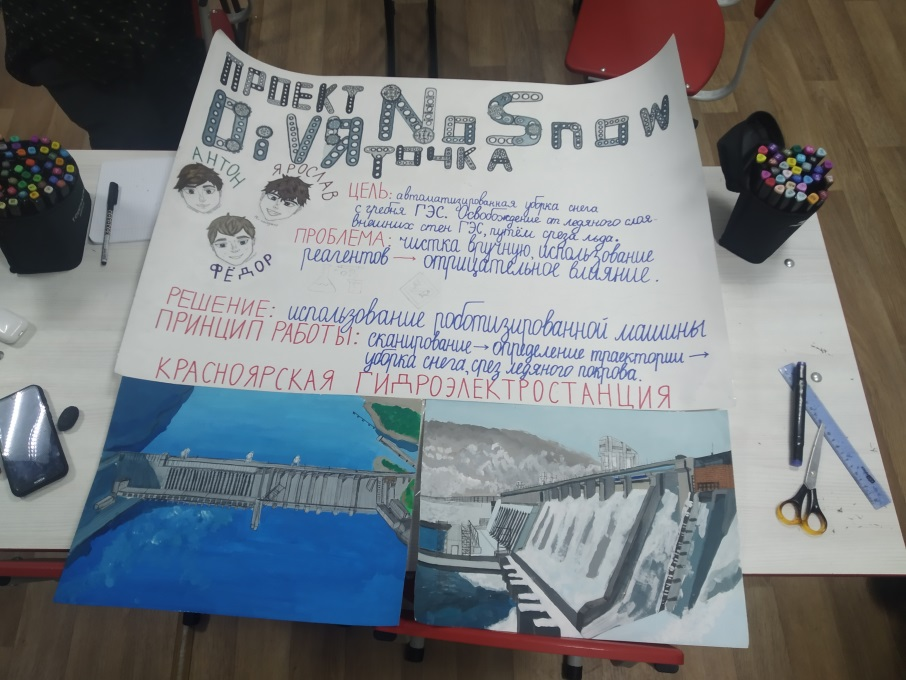 ПРОЕКТ
DiVЯ NoSnow
ТОЧКА
АНТОН
ЯРОСЛАВ
ФЁДОР
ЦЕЛЬ: автоматизированная уборка снега
с гребня ГЭС. Освобождение от ледяного слоя
внешних стен ГЭС, путём среза льда.
ПРОБЛЕМА: чистка вручную, использование
реагентов → отрицательное влияние.
РЕШЕНИЕ: использование роботизированной машины
ПРИНЦИП РАБОТЫ: сканирование → определение траектории →
уборка снега, срез ледяного покрова.
КРАСНОЯРСКАЯ ГИДРОЭЛЕКТРОСТАНЦИЯ